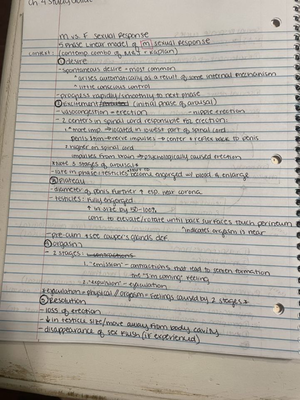 Ch. 4 study guide
M vs. F sexual Response
5 phase linear model of [m] sexual response
(contemp. combo of M&J + Kaplan)
① Desire
- spontaneous desire - most common
* arises automatically as a result of some internal mechanism
* little conscious control
- progress rapidly/smoothly to next phase
② Excitement (initial phase of arousal)
- vasocongestion → erection - nipple erection
- 2 centers in spinal cord responsible for erection:
1. * more imp. → located in lowest part of spinal cord
penis stim → nerve impulses → center → reflex back to penis
2. * higher on spinal cord
impulses from brain → psychologically caused erection
* Note 2 stages of arousal *
- late in phase: testicles become engorged → enlarge
③ Plateau
- diameter of penis further ↑ esp. near corona
- testicles: fully engorged
↑ in size by 50-100%
cont. to elevate/rotate until back surfaces touch perineum
* indicates orgasm is near
- pre cum → see cowper's glands def.
④ Orgasm
- 2 stages:
1. "emission" - contractions that lead to semen formation
the "I'm coming" feeling
2. "expulsion" - ejaculation
* ejaculation = physical // orgasm = feelings caused by 2 stages *
⑤ Resolution
- loss of erection
- ↓ in testicle size/move away from body cavity
- disappearance of sex flush (if experienced)